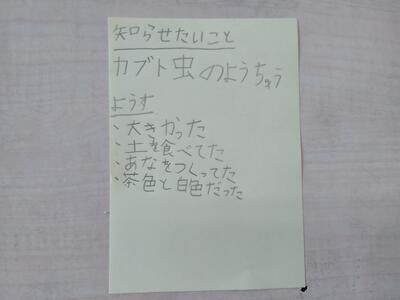 知らせたいこと
カブト虫のようちゅう
ようす
・大きかった
・土を食べてた
・あなをつくってた
・茶色と白色だった